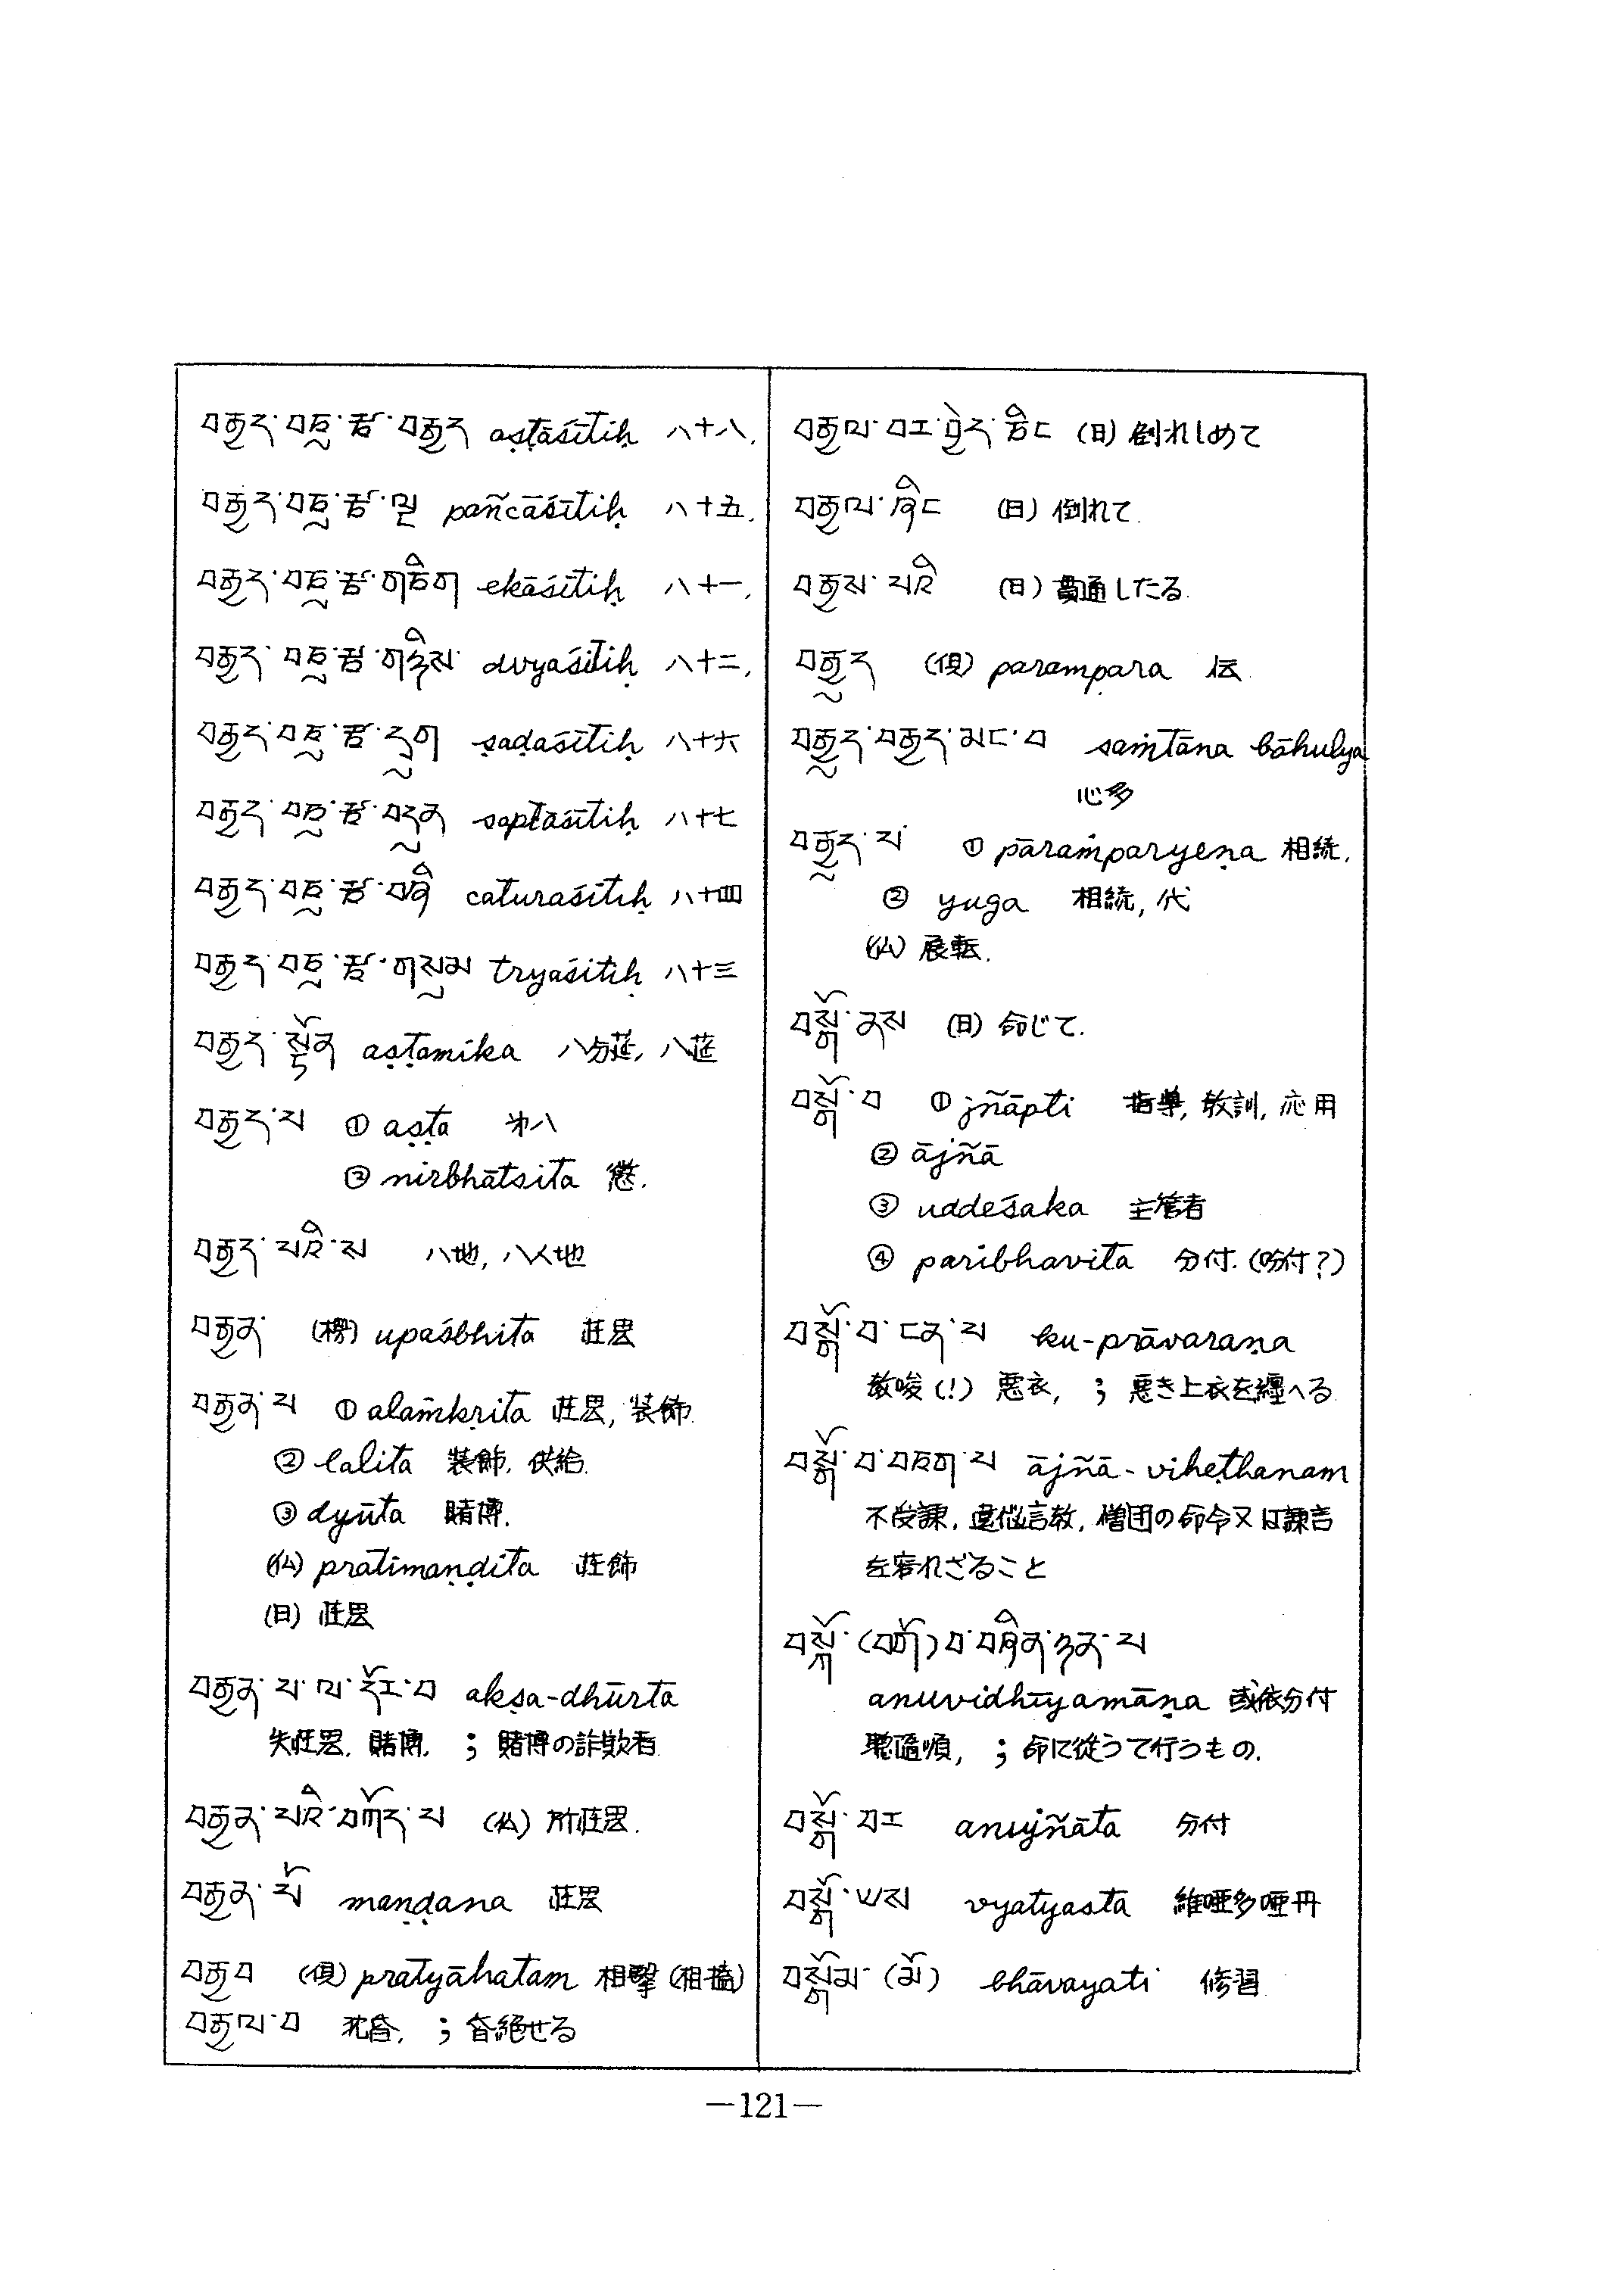 བརྒྱད་བཅུ་རྩ་བརྒྱད aṣṭāśītiḥ 八十八,
བརྒྱད་བཅུ་རྩ་ལྔ pañcāśītiḥ 八十五,
བརྒྱད་བཅུ་རྩ་གཅིག ekāśītiḥ 八十一,
བརྒྱད་བཅུ་རྩ་གཉིས dvyaśītiḥ 八十二,
བརྒྱད་བཅུ་རྩ་དྲུག ṣaḍaśītiḥ 八十六
བརྒྱད་བཅུ་རྩ་བདུན saptāśītiḥ 八十七
བརྒྱད་བཅུ་རྩ་བཞི caturaśītiḥ 八十四
བརྒྱད་བཅུ་རྩ་གསུམ tryaśītiḥ 八十三
བརྒྱད་སྟོན aṣṭamika 八分莚, 八莚
བརྒྱད་པ ① aṣṭa 㐧八
② nirbhātsita 懲.
བརྒྱད་པའི་ས 八地, 八人地
བརྒྱན་ (楞) upaśbhita 荘思
བརྒྱན་པ ① alaṁkṛita 荘思, 装飾.
② lalita 装飾. 供給.
③ dyūta 賭博.
(仏) pratimaṇḍita 荘飾
(日) 荘思
བརྒྱན་པ་ལ་ akṣa-dhūrta
失荘思. 賭博. ; 賭博の詐欺者.
བརྒྱན་པའི་བཀོད་པ (仏) 所荘思.
བརྒྱན་པོ maṇḍana 荘思
བརྒྱབ (倶) pratyāhatam 相撃 (相搐)
བརྒྱལ་བ 沈昏, ; 昏絶せる
བརྒྱལ་བར་བྱེད་ཅིང (日) 倒れしめて
བརྒྱལ་ཞིང (日) 倒れて.
བརྒྱས་པའི (日) 貫通したる.
བརྒྱུད (倶) parampara 伝
བརྒྱུད་བརྒྱད་མང་བ saṁtāna bāhulya
心多
བརྒྱུད་པ ① pāraṁparyeṇa 相続,
② yuga 相続, 代
(仏) 展転.
བསྒོ་ནས (日) 命じて.
བསྒོ་བ ① jñāpti 指導, 教訓, 応用
② ājñā
③ uddeśaka 主管者
④ paribhavita 分付. (吩付?)
བསྒོ་བ་ངན་པ ku-prāvaraṇa
教唆 (!) 悪衣, ; 悪き上衣を纏へる.
བསྒོ་བ་ ājñā-viheṭhanam
不受諫. 違 言教, 僧団の命令又は諫言
を容れざること
བསྒོ་ (བགོ) བ་བཞིན་ཉན་པ
anuvidhīyamāṇa 或依分付
聴 順, ; 命に従うて行うもの.
བསྒོ་བར anujñāta 分付
བསྒོ་ཡས vyatyasta 維唖多唖冊
བསྒོམ་ (མོ) bhāvayati 修習
—121—